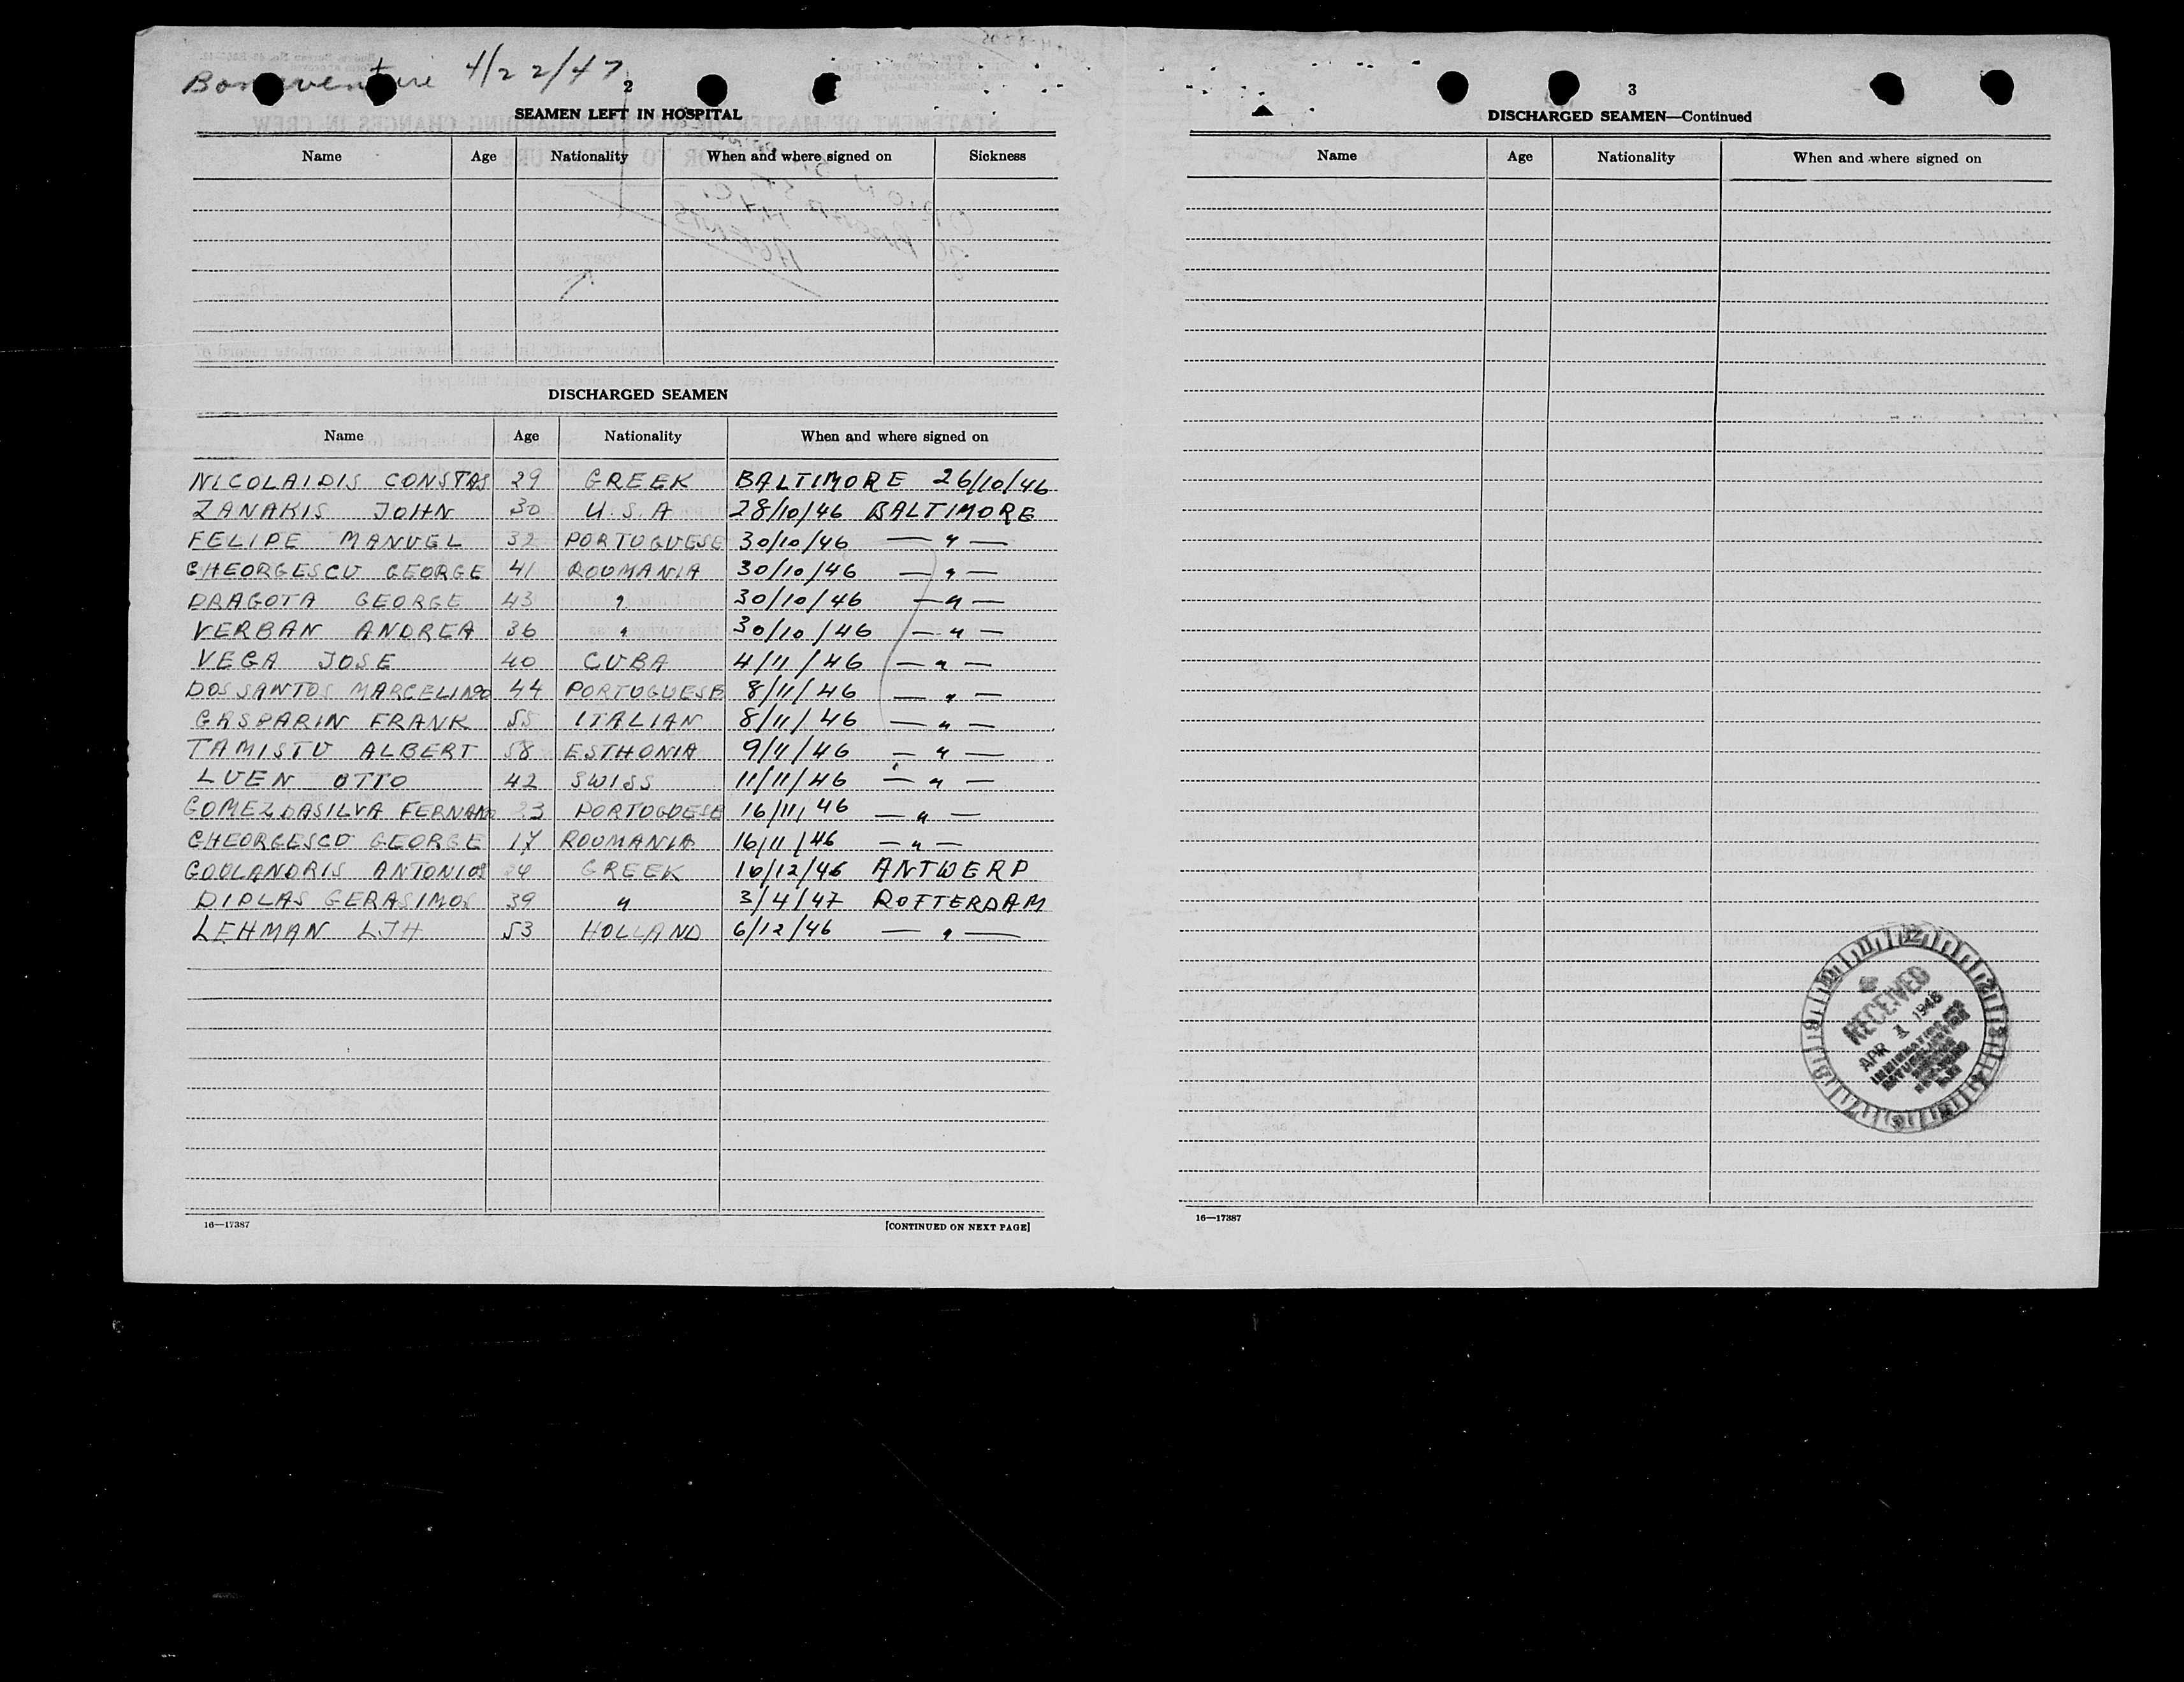 Bonaventure 4/22/47
2
SEAMEN LEFT IN HOSPITAL
Name Age Nationality When and where signed on Sickness
DISCHARGED SEAMEN
Name Age Nationality When and where signed on
NICOLAIDIS CONSTAS 29 GREEK BALTIMORE 26/10/46
ZANAKIS JOHN 30 U.S.A 28/10/46 BALTIMORE
FELIPE MANUEL 32 PORTUGUESE 30/10/46 — " —
GHEORGESCU GEORGE 41 ROUMANIA 30/10/46 — " —
DRAGOTA GEORGE 43 " 30/10/46 — " —
VERBAN ANDREA 36 " 30/10/46 — " —
VEGA JOSE 40 CUBA 4/11/46 — " —
DOS SANTOS MARCELINO 44 PORTUGUESE 8/11/46 — " —
GASPARIN FRANK 55 ITALIAN 8/11/46 — " —
TAMISTU ALBERT 58 ESTHONIA 9/11/46 — " —
LUEN OTTO 42 SWISS 11/11/46 — " —
GOMEZ DASILVA 23 PORTOGUESE 16/11/46 — " —
GHEORGESCO GEORGE 17 ROUMANIA 16/11/46 — " —
GOULANDRIS ANTONIOS GREEK 10/12/46 ANTWERP
DIPLAS GERASIMOS 39 " 3/4/47 ROTTERDAM
LEHMAN LJH 53 HOLLAND 6/12/46 — " —
16—17387 [CONTINUED ON NEXT PAGE]
3
DISCHARGED SEAMEN—Continued
Name Age Nationality When and where signed on
RECEIVED
APR 1 1948
16—17387